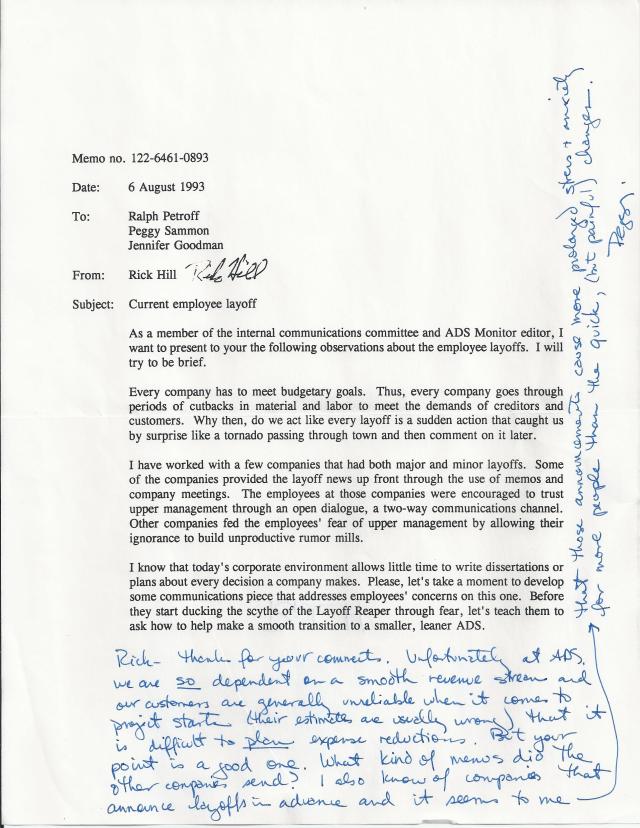 Memo no. 122-6461-0893
Date: 6 August 1993
To: Ralph Petroff
Peggy Sammon
Jennifer Goodman
From: Rick Hill Rick Hill
Subject: Current employee layoff
As a member of the internal communications committee and ADS Monitor editor, I
want to present to your the following observations about the employee layoffs. I will
try to be brief.
Every company has to meet budgetary goals. Thus, every company goes through
periods of cutbacks in material and labor to meet the demands of creditors and
customers. Why then, do we act like every layoff is a sudden action that caught us
by surprise like a tornado passing through town and then comment on it later.
I have worked with a few companies that had both major and minor layoffs. Some
of the companies provided the layoff news up front through the use of memos and
company meetings. The employees at those companies were encouraged to trust
upper management through an open dialogue, a two-way communications channel.
Other companies fed the employees' fear of upper management by allowing their
ignorance to build unproductive rumor mills.
I know that today's corporate environment allows little time to write dissertations or
plans about every decision a company makes. Please, let's take a moment to develop
some communications piece that addresses employees' concerns on this one. Before
they start ducking the scythe of the Layoff Reaper through fear, let's teach them to
ask how to help make a smooth transition to a smaller, leaner ADS.
Rick - thanks for your comments. Unfortunately at ADS,
we are so dependent on a smooth revenue stream and
our customers are generally unreliable when it comes to
project starts (their estimates are usually wrong) that it
is difficult to plan expense reductions. But your
point is a good one. What kind of memos did the
other companies send? I also know of companies that
announce layoffs in advance and it seems to me
that those announcements cause more prolonged stress + anxiety
for more people than the quick, (but painful) changes.
Peggy.